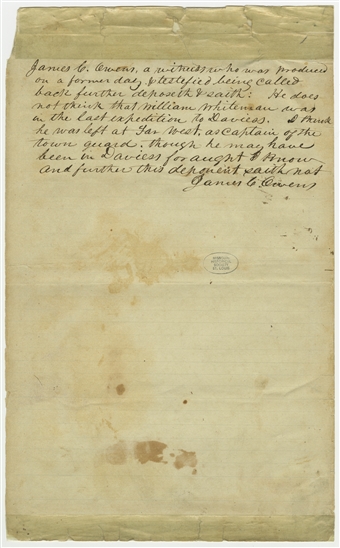 James C. Owens, a witness who was produced
on a former day & testified being called
back further deposeth & saith: He does
not think that William Whiteman was
in the last expedition to Daviess. I think
he was left at Far West, as Captain of the
town guard. though he may have
been in Daviess for aught I know
and further this deponent saith not
James C Owens